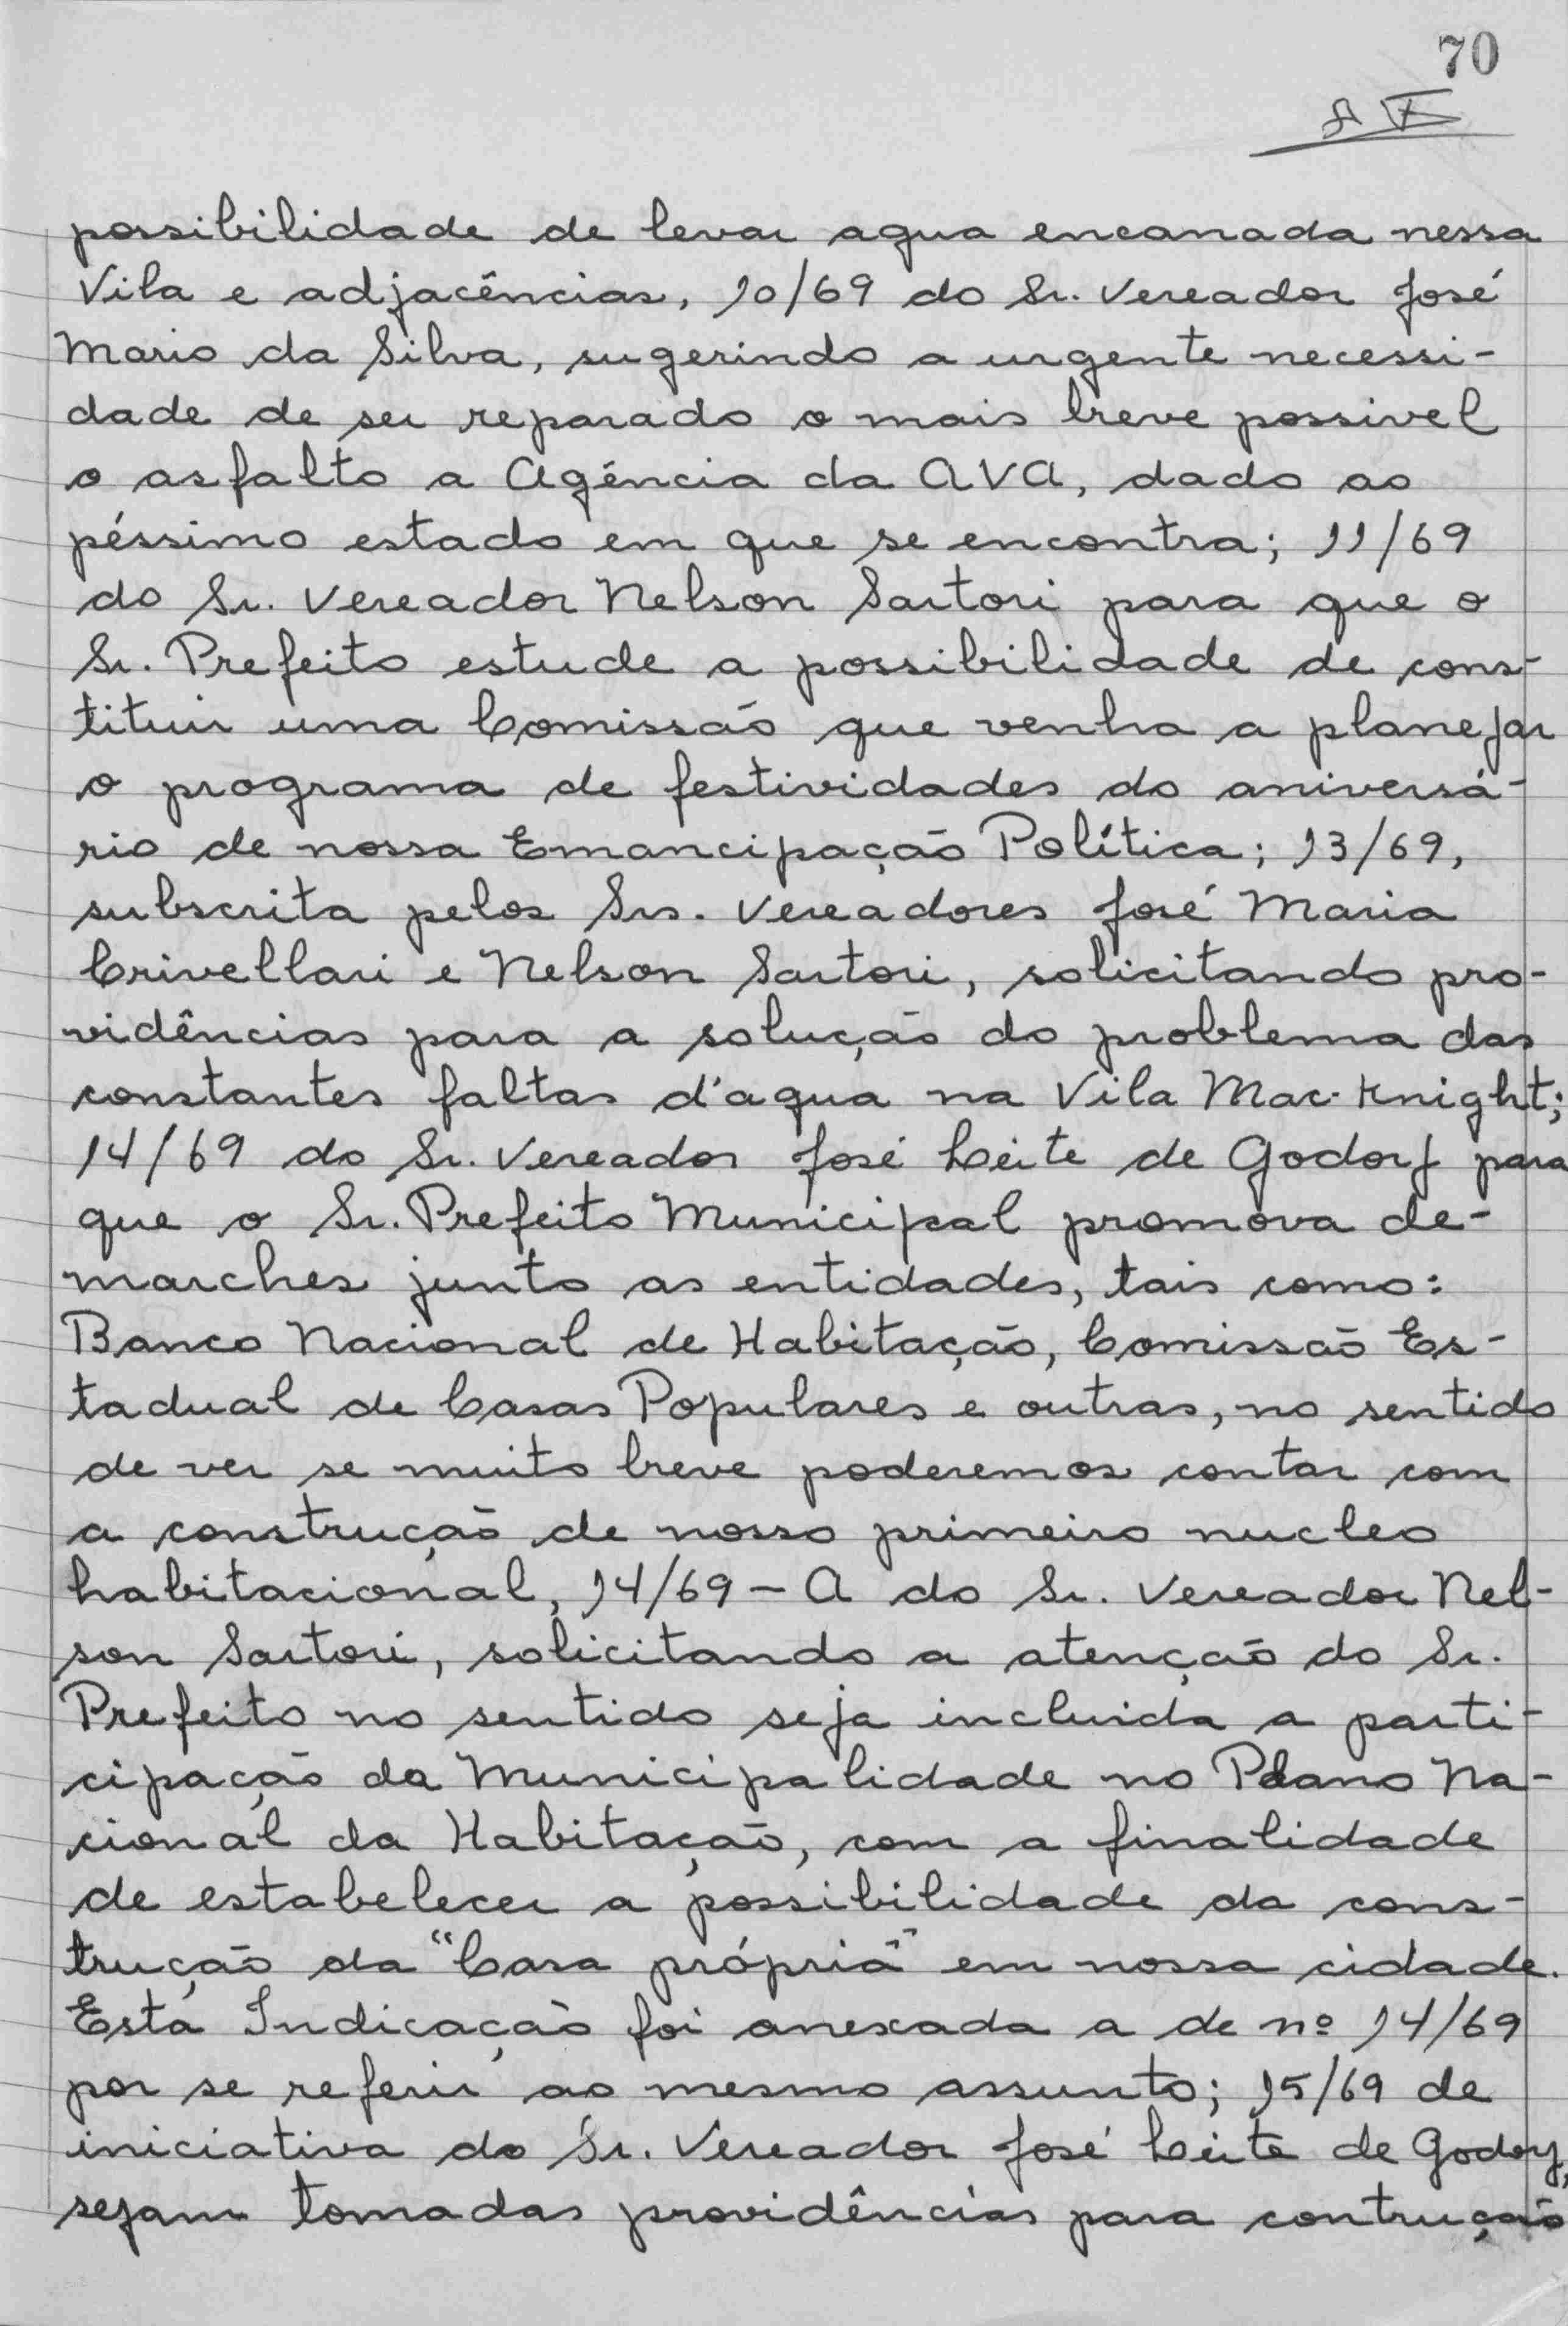 70
possibilidade de levar agua encanada nessa
Vila e adjacências, 10/69 do Sr. Vereador José
Mario da Silva, sugerindo a urgente necessi-
dade de ser reparado o mais breve possivel
o asfalto a Agência da AVA, dado ao
péssimo estado em que se encontra; 11/69
do Sr. Vereador Nelson Sartori para que o
Sr. Prefeito estude a possibilidade de cons-
tituir uma Comissão que venha a planejar
o programa de festividades do aniversá-
rio de nossa Emancipação Política; 13/69,
subscrita pelos Srs. Vereadores José Maria
Crivellari e Nelson Sartori, solicitando pro-
vidências para a solução do problema das
constantes faltas d'agua na Vila Mac-Knight;
14/69 do Sr. Vereador José Leite de Godoy para
que o Sr. Prefeito Municipal promova de-
marches junto as entidades, tais como:
Banco Nacional de Habitação, Comissão Es-
tadual de Casas Populares e outras, no sentido
de ver se muito breve poderemos contar com
a construção de nosso primeiro nucleo
habitacional, 14/69 - A do Sr. Vereador Nel-
son Sartori, solicitando a atenção do Sr.
Prefeito no sentido seja incluida a parti-
cipação da Municipalidade no Plano Na-
cional da Habitação, com a finalidade
de estabelecer a possibilidade da cons-
trução da "Casa própria" em nossa cidade.
Esta Indicação foi anexada a de nº 14/69
por se referir ao mesmo assunto; 15/69 de
iniciativa do Sr. Vereador José Leite de Godoy,
sejam tomadas providências para contrução